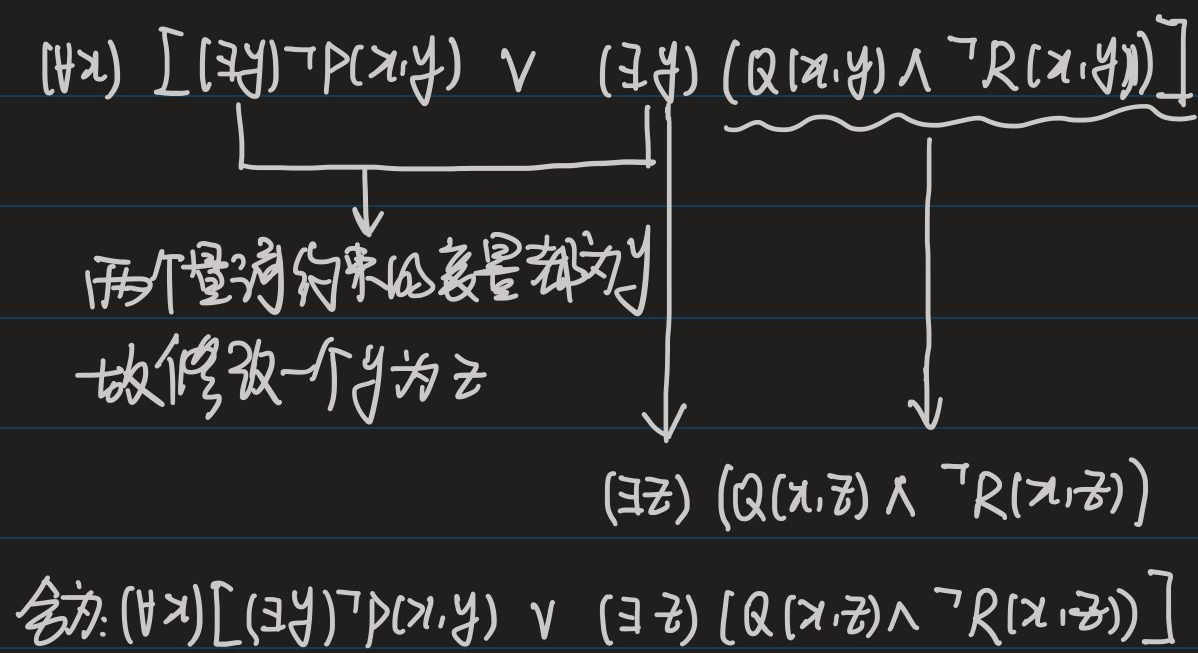 (∀x) [(∃y)¬P(x,y) ∨ (∃y) (Q(x,y) ∧ ¬R(x,y))]
两个量词约束的变量都为y
故修改一个y为z
(∃z) (Q(x,z) ∧ ¬R(x,z))
合为:(∀x)[(∃y)¬P(x,y) ∨ (∃z) (Q(x,z) ∧ ¬R(x,z))]